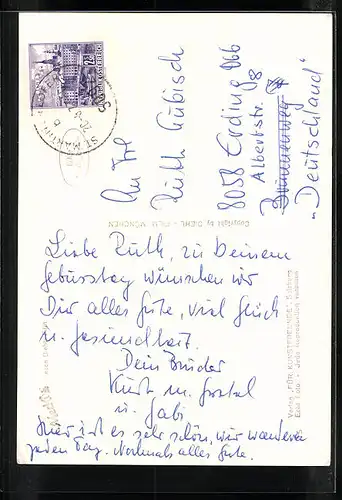 An Frl
Ruth Gubisch
8058 Erding Obb
Albertstr. 8
Brünnenweg
"Deutschland"
Copyright by DIEHL - FILM MÜNCHEN
Liebe Ruth, zu Deinem
Geburstag wünschen wir
Dir alles Gute, viel Glück
u. Gesundheit.
Dein Bruder
Kurt m.
u. Gabi
Hier ist es sehr schön, wir wandern
jeden Tag. Nochmals alles Gute.
Verlag "FÜR KUNSTFREUNDE"
ST. MARTIN